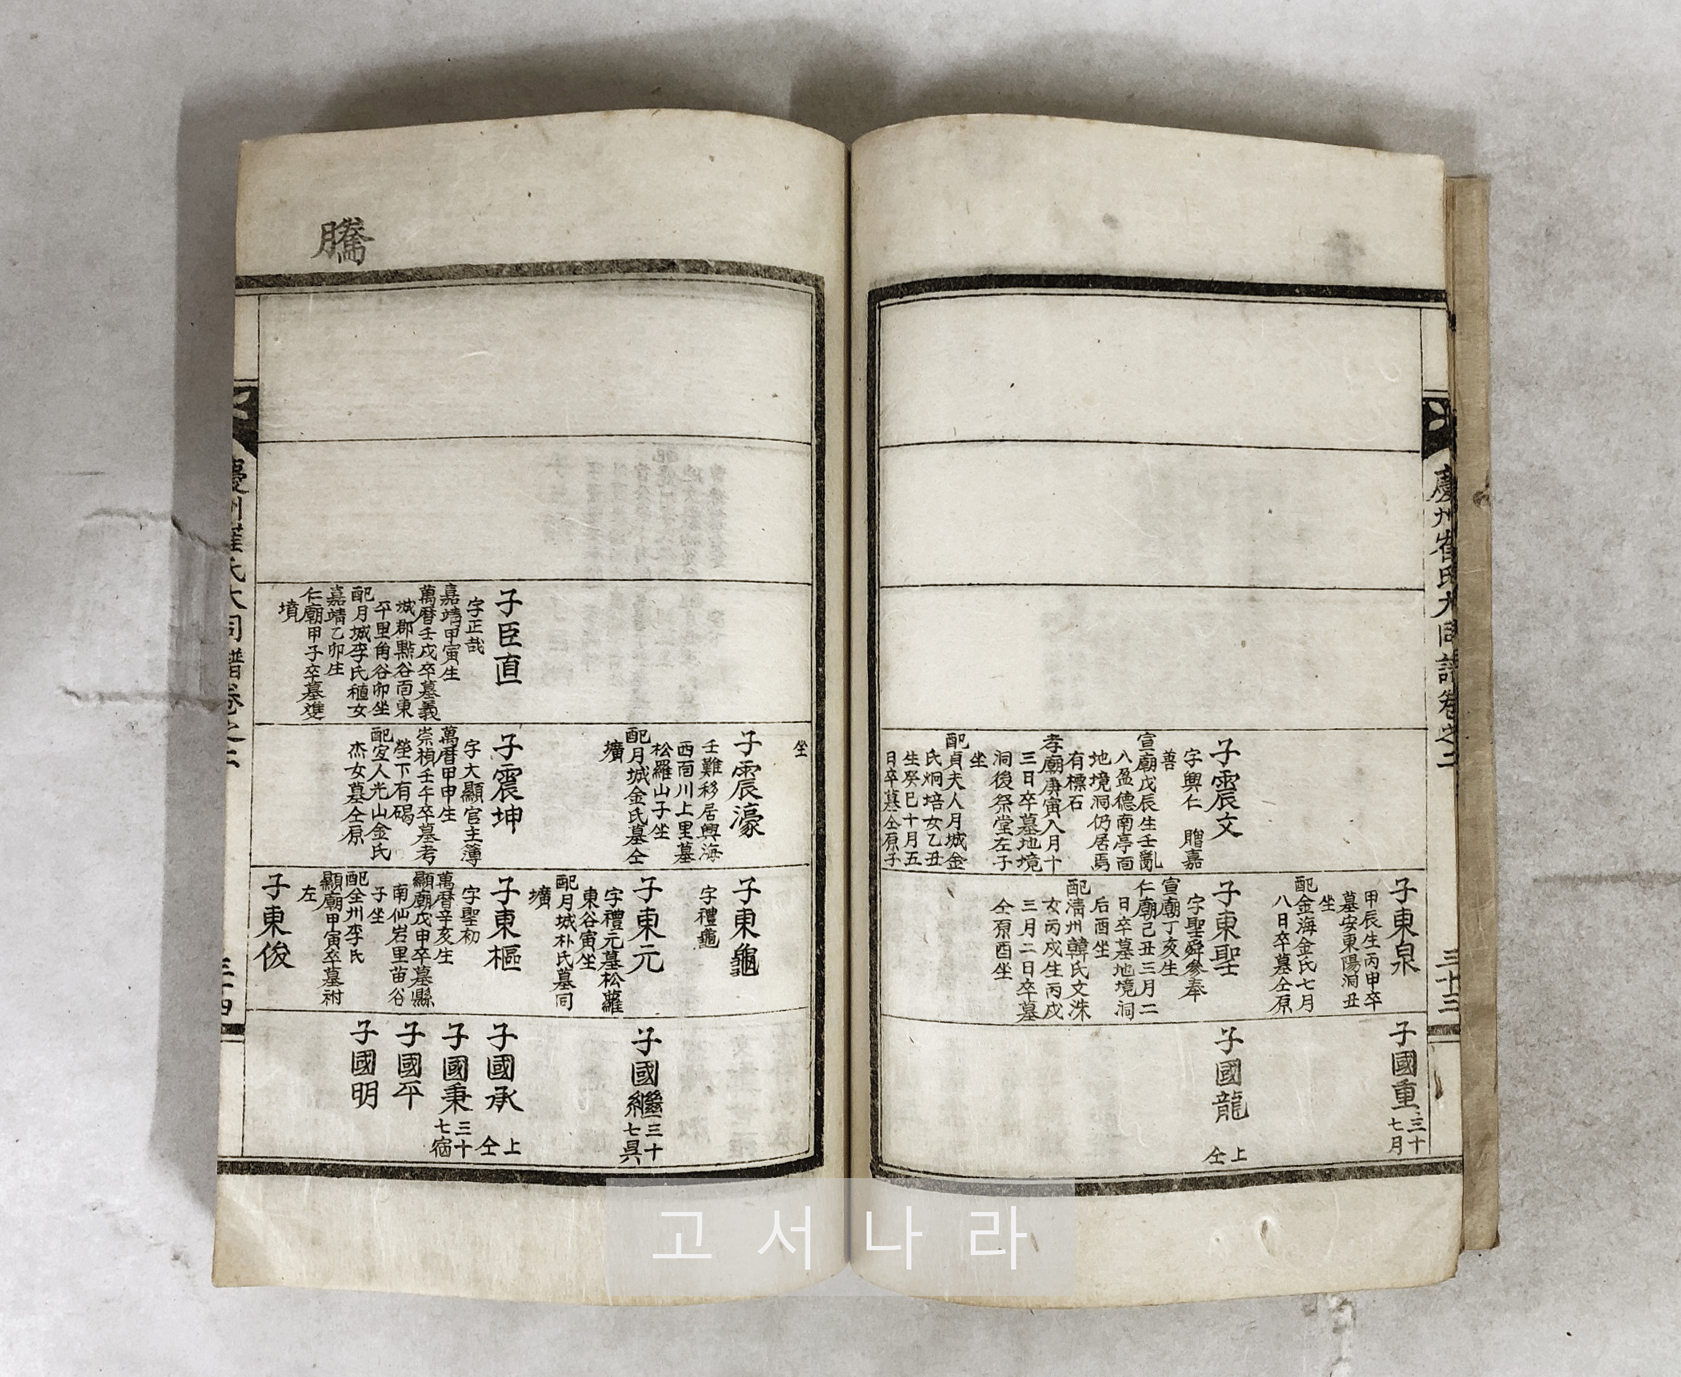 慶州崔氏大同譜卷之二
三十三
子震文
字興仁 贈嘉
善
宣廟戊辰生壬亂
八盈德南亭面
地境洞仍居焉
有標石
孝廟庚寅八月十
三日卒墓地境
洞後祭堂左子
坐
配貞夫人月城金
氏炯培女乙丑
生癸巳十月五
日卒墓仝原子
子東泉
甲辰生丙申卒
墓安東陽洞丑
坐
配金海金氏七月
八日卒墓仝原
子東聖
字聖舜參奉
宣廟丁亥生
仁廟己丑三月二
日卒墓地境洞
后酉坐
配清州韓氏文洙
女丙戌生丙戌
三月二日卒墓
仝原酉坐
子國重
三十
七月
子國龍
上
仝
騰
子臣直
字正哉
嘉靖甲寅生
萬曆壬戌卒墓義
城郡點谷面東
平里角谷卯坐
配月城李氏稙女
嘉靖乙卯生
仁廟甲子卒墓雙
墳
坐
子震濠
壬難移居興海
西面川上里墓
松羅山子坐
配月城金氏墓仝
壙
子震坤
字大顯官主簿
萬曆甲申生
崇禎壬午卒墓考
塋下有碣
配宜人光山金氏
杰女墓仝原
子東龜
字禮龜
子東元
字禮元墓松蘿
東谷寅坐
配月城朴氏墓同
壙
子東樞
字聖初
萬曆辛亥生
顯廟戊申卒墓縣
南仙岩里苗谷
子坐
配全州李氏
顯廟甲寅卒墓祔
左
子東俊
子國繼
三十
七昃
子國承
上
仝
子國秉
三十
七宿
子國平
子國明
慶州崔氏大同譜卷之二
三十四
고서나라